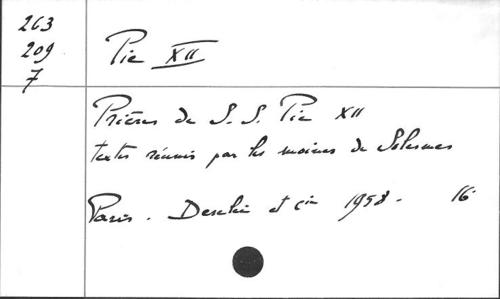 263
209
7
Pie XII
Prières de S. S. Pie XII
textes réunis par les moines de Solesmes
Paris. Desclée et Cie 1958. 16